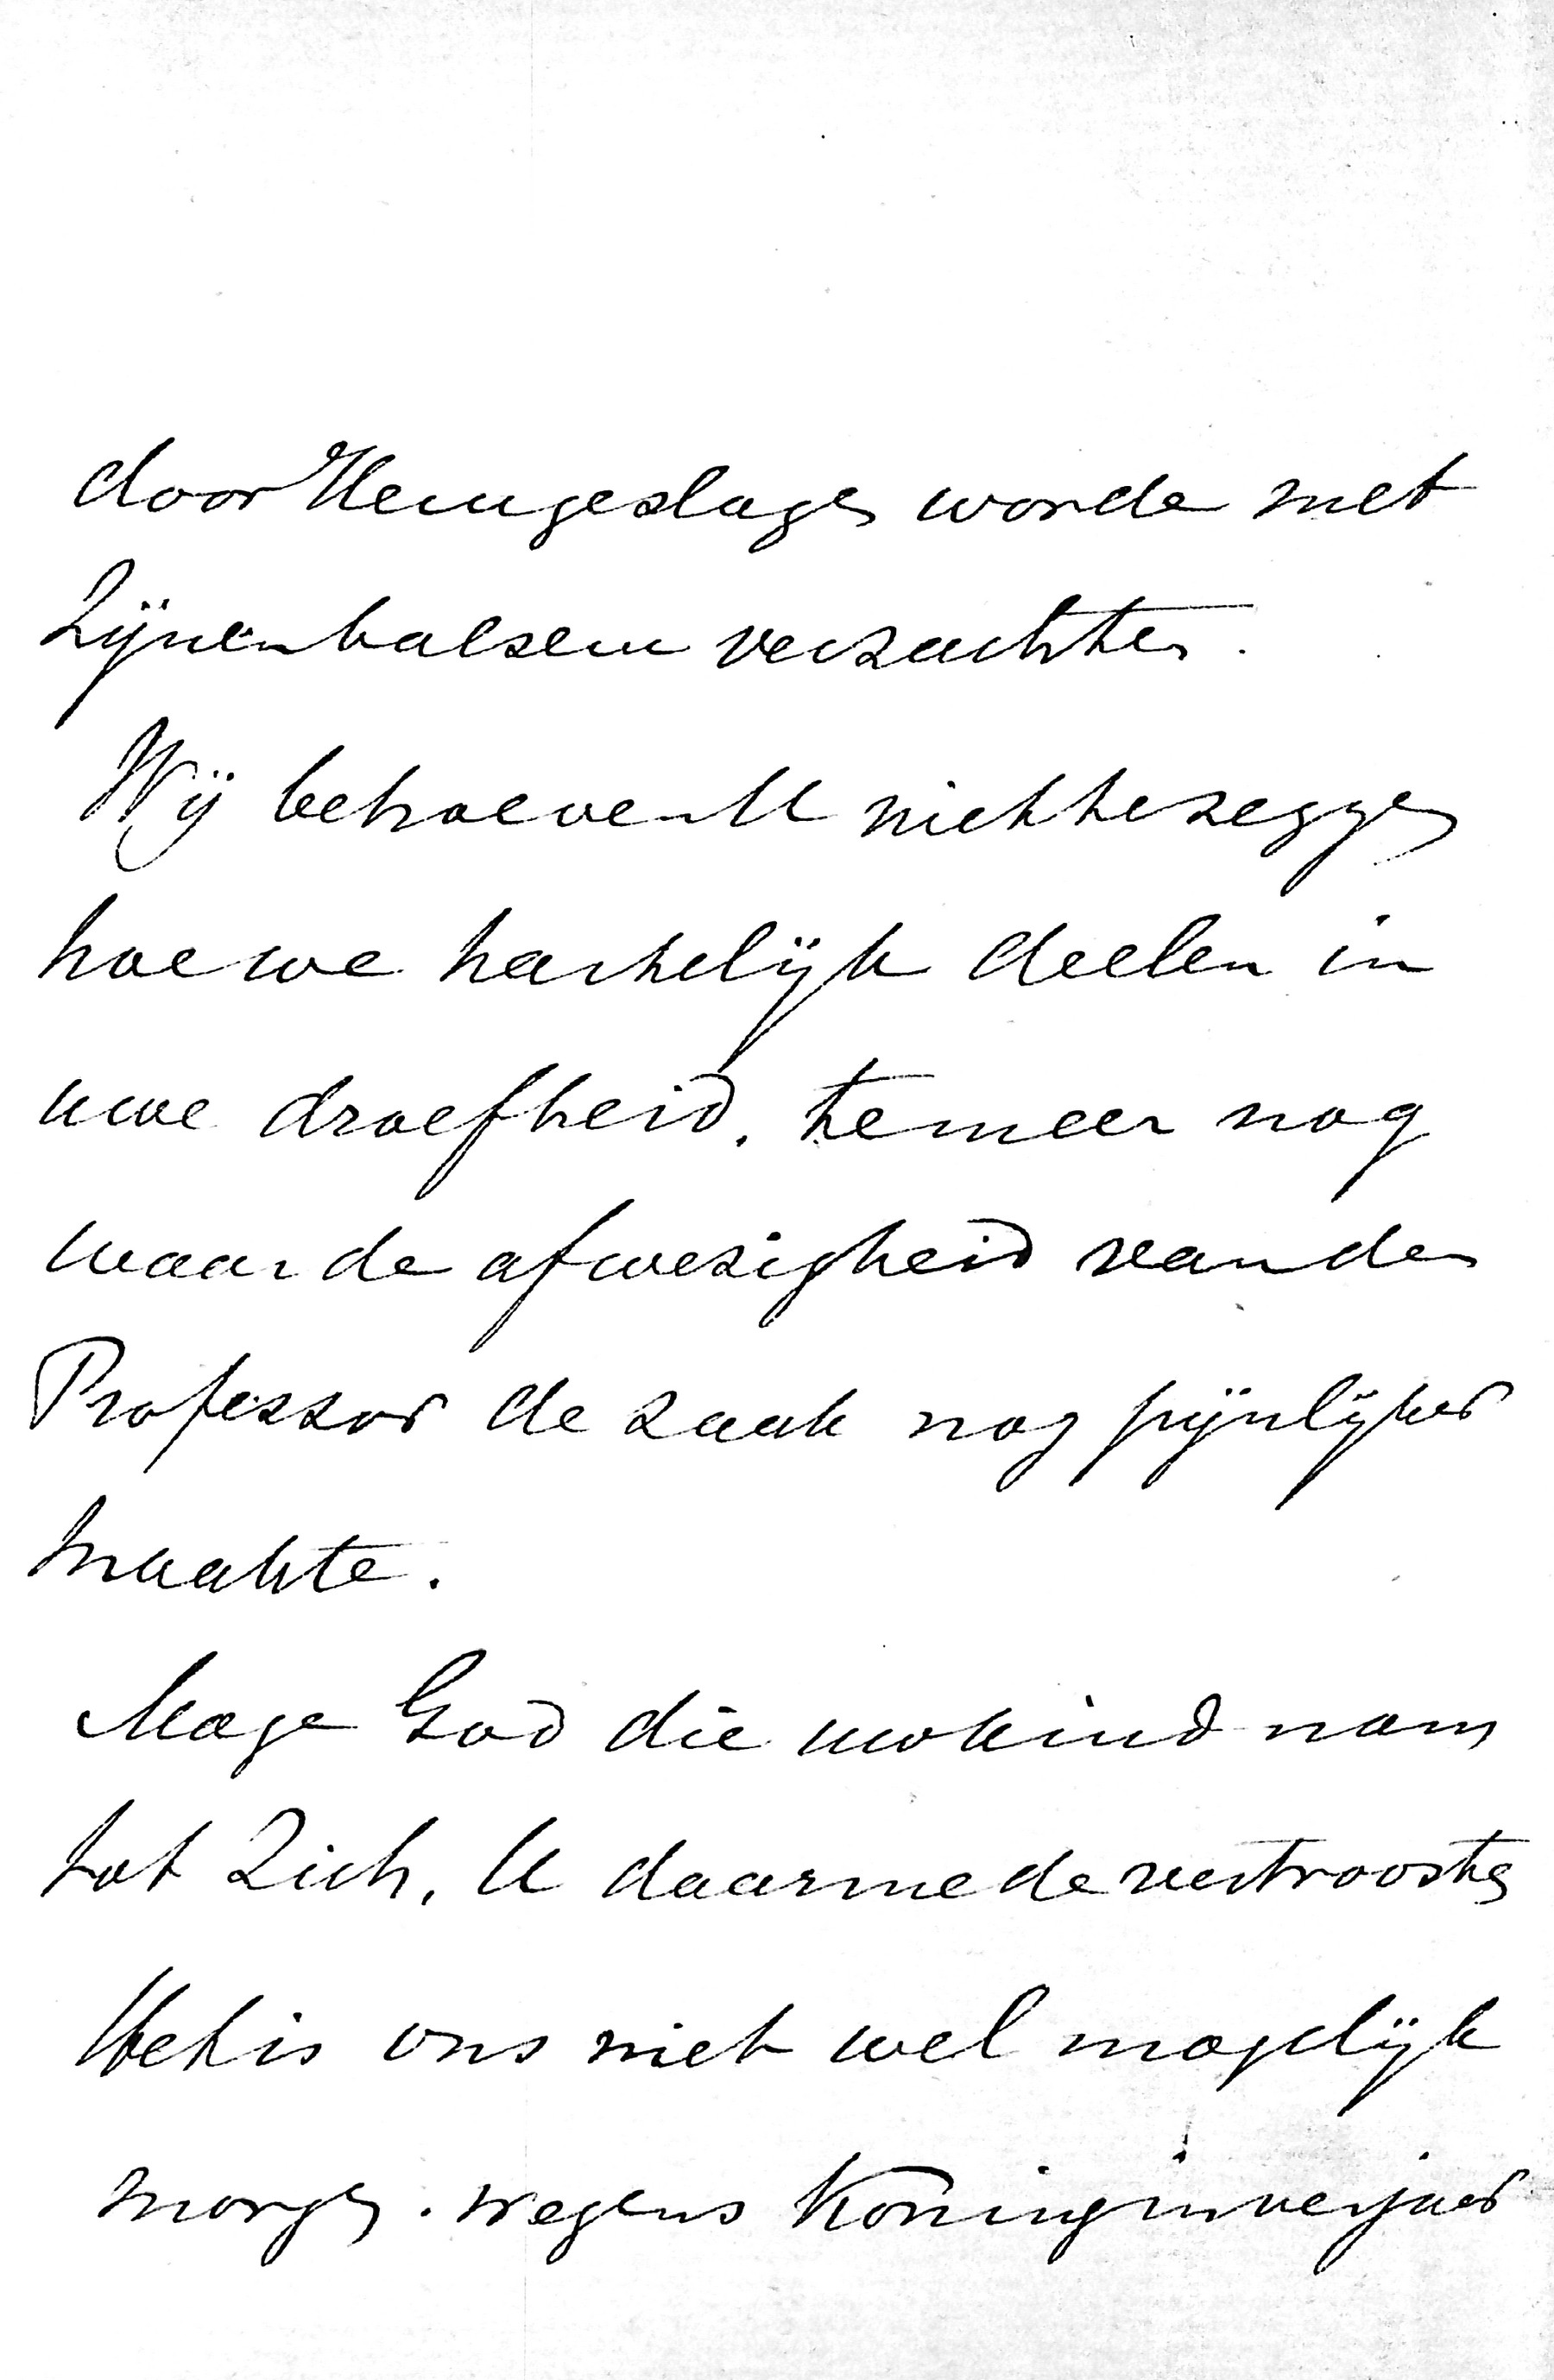 door Hem geslagen wonde met
Zijnen balsem verzachten.
Wij behoeven U niet te zeggen
hoe we hartelijk deelen in
uwe droefheid. te meer nog
waar de afwezigheid van den
Professor de zaak nog pijnlijker
maakte.
Moge God die uw kind nam
tot Zich, U daarmede vertroosten
Het is ons niet wel mogelijk
morgen. wegens Koninginverjaar